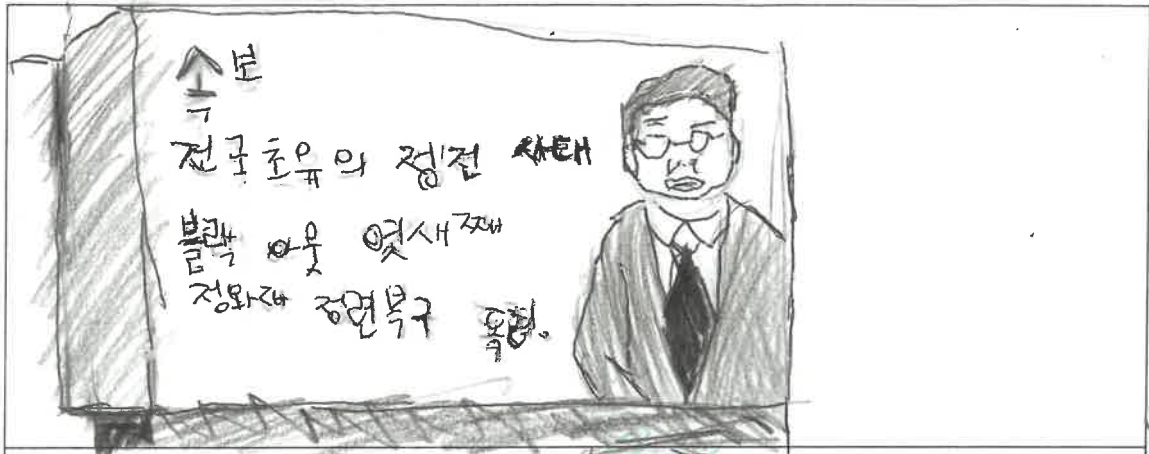 속보
전국초유의 정전 사태
블랙 아웃 엿새째
정와대 정련복구